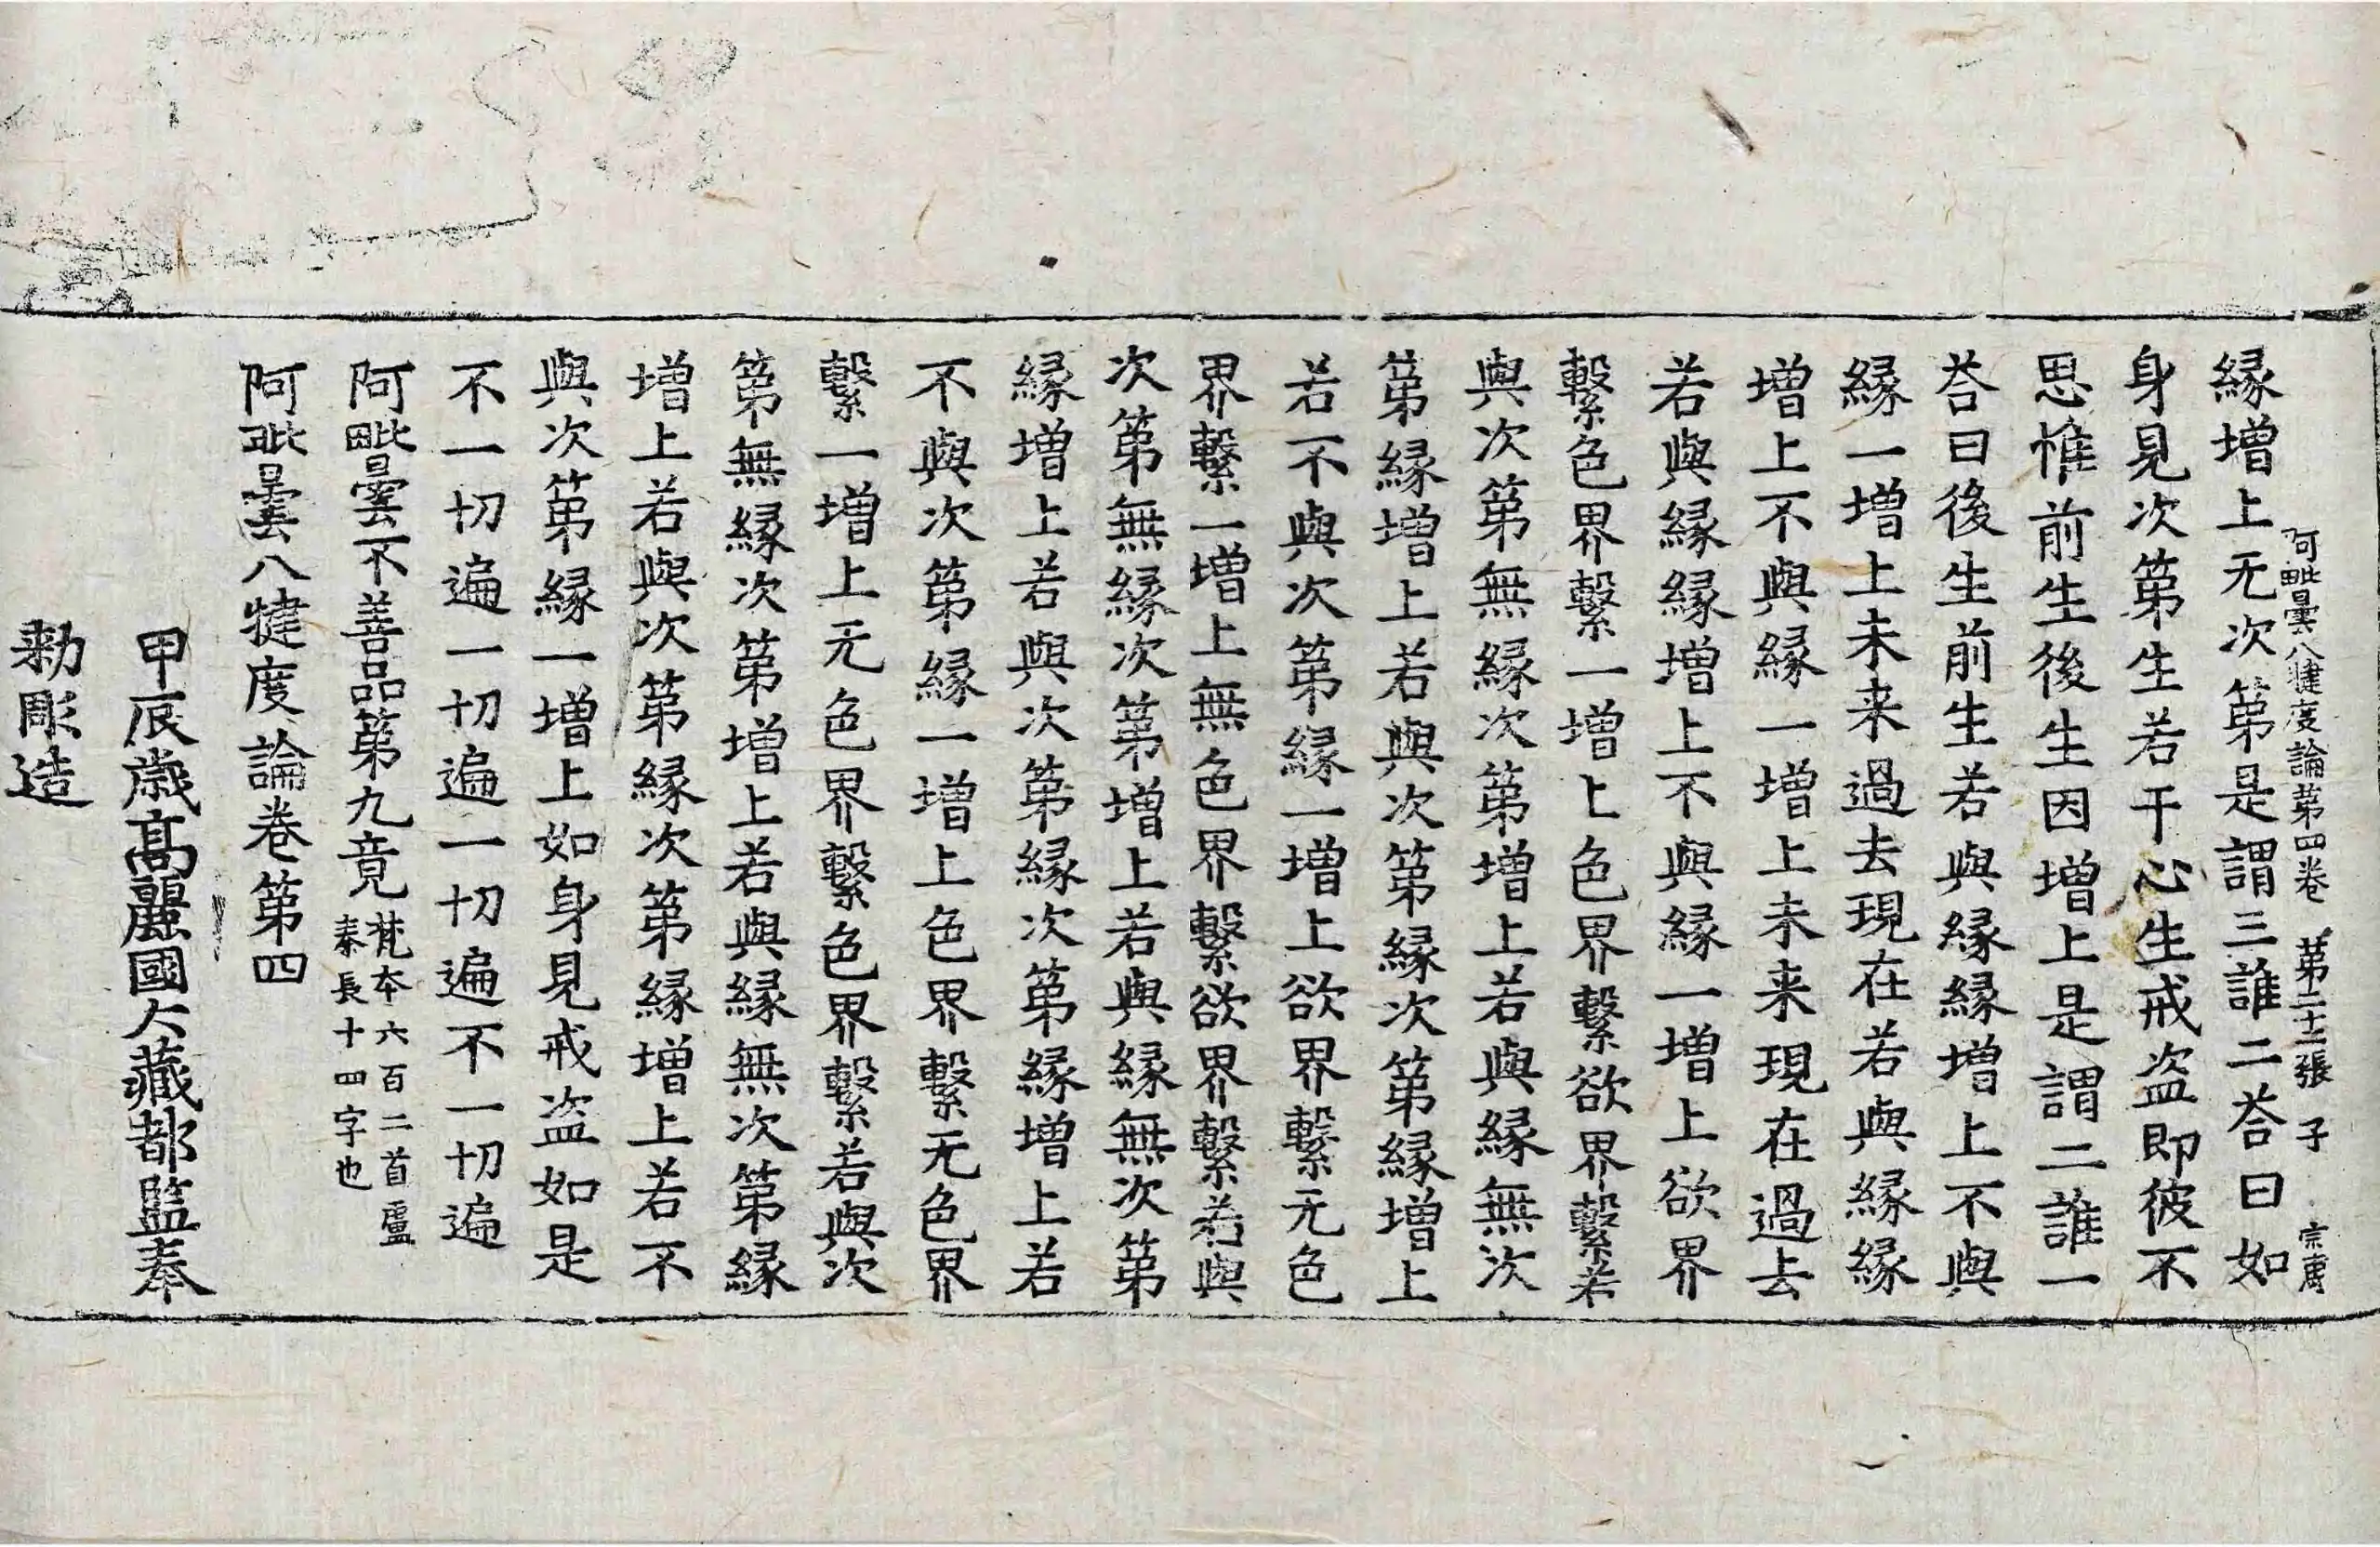 阿毗曇八犍度論第四卷 第二十三張 子
縁增上无次第是謂三誰二荅曰如
身見次第生若干心生戒盗即彼不
思惟前生後生因增上是謂二誰一
荅曰後生前生若與縁縁增上不與
縁一增上未来過去現在若與縁縁
增上不與縁一增上未来現在過去
若與縁縁增上不與縁一增上欲界
繫色界繫一增上色界繫欲界繫若
與次第無縁次第增上若與縁無次
第縁增上若與次第縁次第縁增上
若不與次第縁一增上欲界繫无色
界繫一增上無色界繫欲界繫若與
次第無縁次第增上若與縁無次第
縁增上若與次第縁次第縁增上若
不與次第縁一增上色界繫无色界
繫一增上无色界繫色界繫若與次
第無縁次第增上若與縁無次第縁
增上若與次第縁次第縁增上若不
與次第縁一增上如身見戒盗如是
不一切遍一切遍一切遍不一切遍
阿毗曇不善品第九竟 梵本六百二首盧
秦長十四字也
阿毗曇八犍度論卷第四
甲辰歳髙麗國大藏都監奉
勅彫造